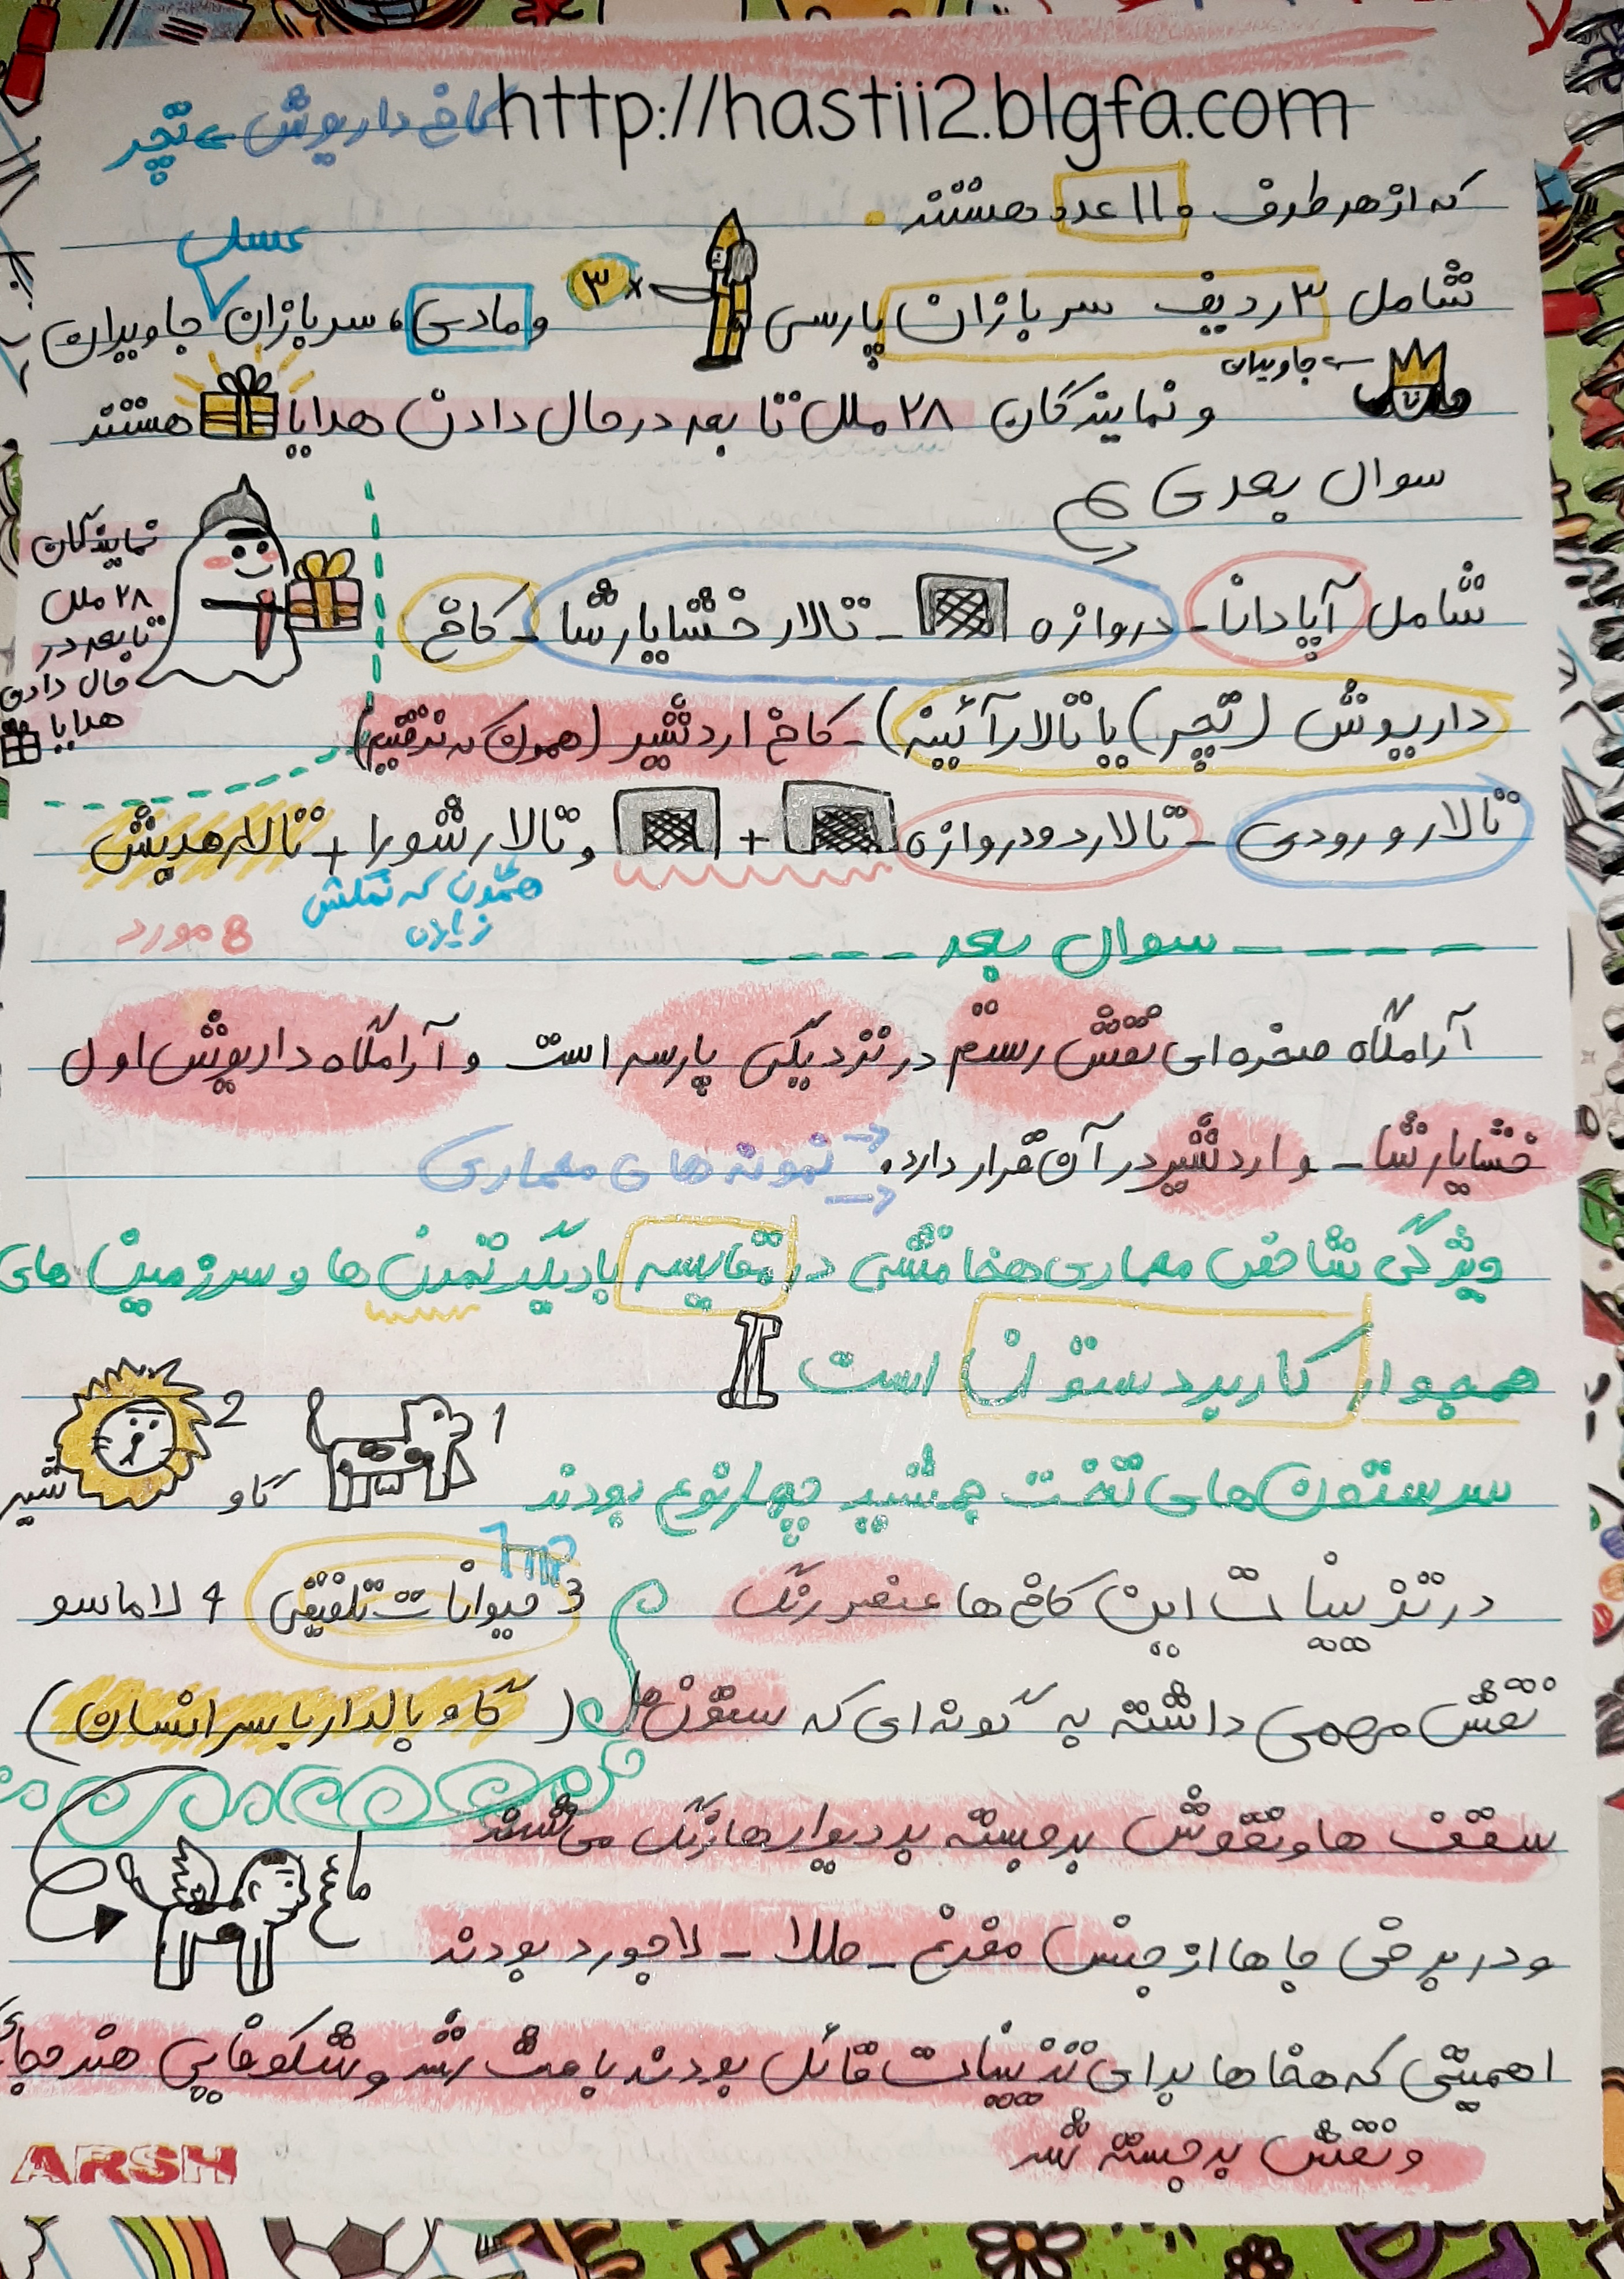 http://hastii2.blgfa.com
کاخ داریوش ← تچر
که از هر طرف ۱۱۰ عدد هستند.
عسل
شامل ۳ ردیف سربازان پارسی ×۳ و مادی، سربازان جاویدان
← جاویدان
و نمایندگان ۲۸ ملل تابعه در حال دادن هدایا هستند
سوال بعدی
نمایندگان
۲۸ ملل
تابعه در
حال دادن
هدایا
شامل آپادانا - دروازه - تالار خشایارشا - کاخ
داریوش (تچر) یا تالار آئینه) - کاخ اردشیر (همون که نرفتیم)
تالار ورودی - تالار دو دروازه + و تالار شورا + تالار هدیش
همون که عکس زیادن
8 مورد
---- سوال بعد ----
آرامگاه صخره ای نقش رستم در نزدیکی پارسه است و آرامگاه داریوش اول
خشایارشا - و اردشیر در آن قرار دارد. نمونه های معماری
ویژگی شاخص معماری هخامنشی در مقایسه با دیگر تمدن ها و سرزمین های
همجوار کاربرد ستون است
سرستون های تخت جمشید چهار نوع بودند 1 گاو 2 شیر
3 حیوانات تلفیقی 4 لاماسو
(گاو بالدار با سر انسان)
ماع
در تزیینات این کاخ ها عنصر رنگ
نقش مهمی داشته به گونه ای که ستون ها
سقف ها و نقوش برجسته بر دیوارها رنگ می شدند
و در برخی جاها از جنس مفرغ - طلا - لاجورد بودند
اهمیتی که هخا ها برای تزیینات قائل بودند باعث رشد و شکوفایی هنر
و نقش برجسته شد
ARSH